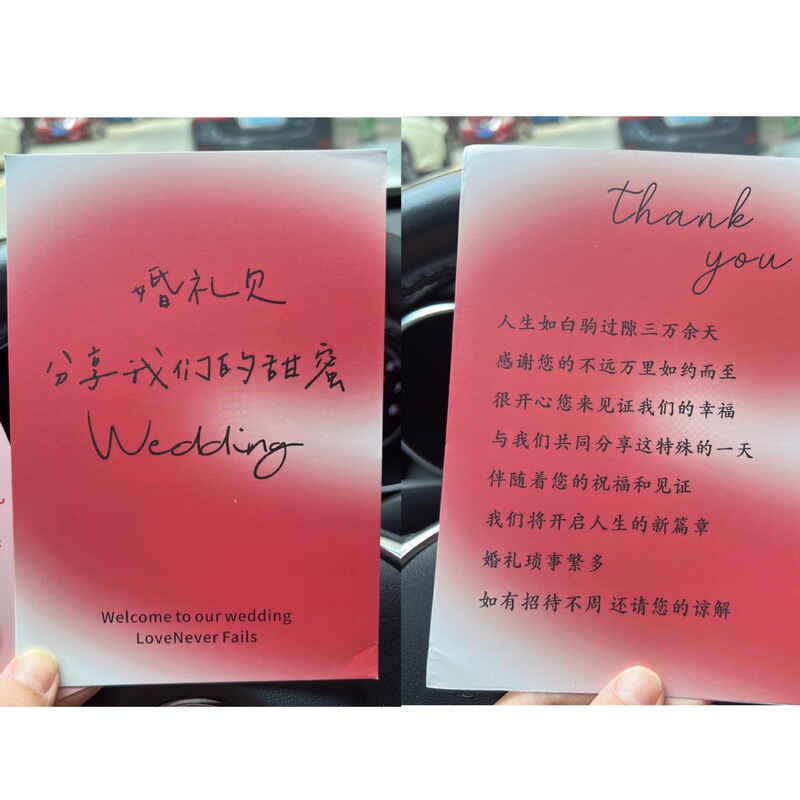 婚礼见
分享我们的甜蜜
Wedding
Welcome to our wedding
LoveNever Fails
thank
you
人生如白驹过隙三万余天
感谢您的不远万里如约而至
很开心您来见证我们的幸福
与我们共同分享这特殊的一天
伴随着您的祝福和见证
我们将开启人生的新篇章
婚礼琐事繁多
如有招待不周 还请您的谅解